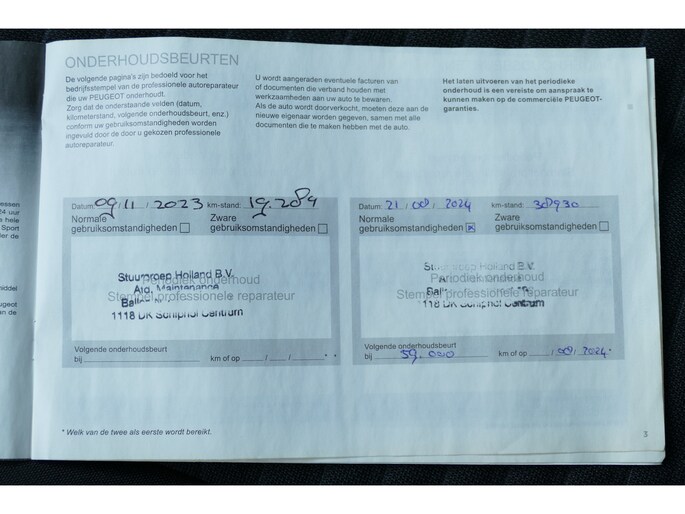 ONDERHOUDSBEURTEN
De volgende pagina's zijn bedoeld voor het
bedrijfsstempel van de professionele autoreparateur
die uw PEUGEOT onderhoudt.
Zorg dat de onderstaande velden (datum,
kilometerstand, volgende onderhoudsbeurt, enz.)
conform uw gebruiksomstandigheden worden
ingevuld door de door u gekozen professionele
autoreparateur.
U wordt aangeraden eventuele facturen van
of documenten die verband houden met
werkzaamheden aan uw auto te bewaren.
Als de auto wordt doorverkocht, moeten deze aan de
nieuwe eigenaar worden gegeven, samen met alle
documenten die te maken hebben met de auto.
Het laten uitvoeren van het periodieke
onderhoud is een vereiste om aanspraak te
kunnen maken op de commerciële PEUGEOT-
garanties.
Datum: 09/11/2023 km-stand: 19.289
Normale gebruiksomstandigheden
Zware gebruiksomstandigheden
Periodiek onderhoud
Stempel professionele reparateur
Holland B.V.
1118
Volgende onderhoudsbeurt
bij km of op / /
*
Datum: 21/08/2024 km-stand: 38930
Normale gebruiksomstandigheden
Zware gebruiksomstandigheden
Holland B.V.
Periodiek onderhoud
Stempel professionele reparateur
Volgende onderhoudsbeurt
bij 59.000 km of op /08/2024 *
* Welk van de twee als eerste wordt bereikt.
3
24 uur
Sport